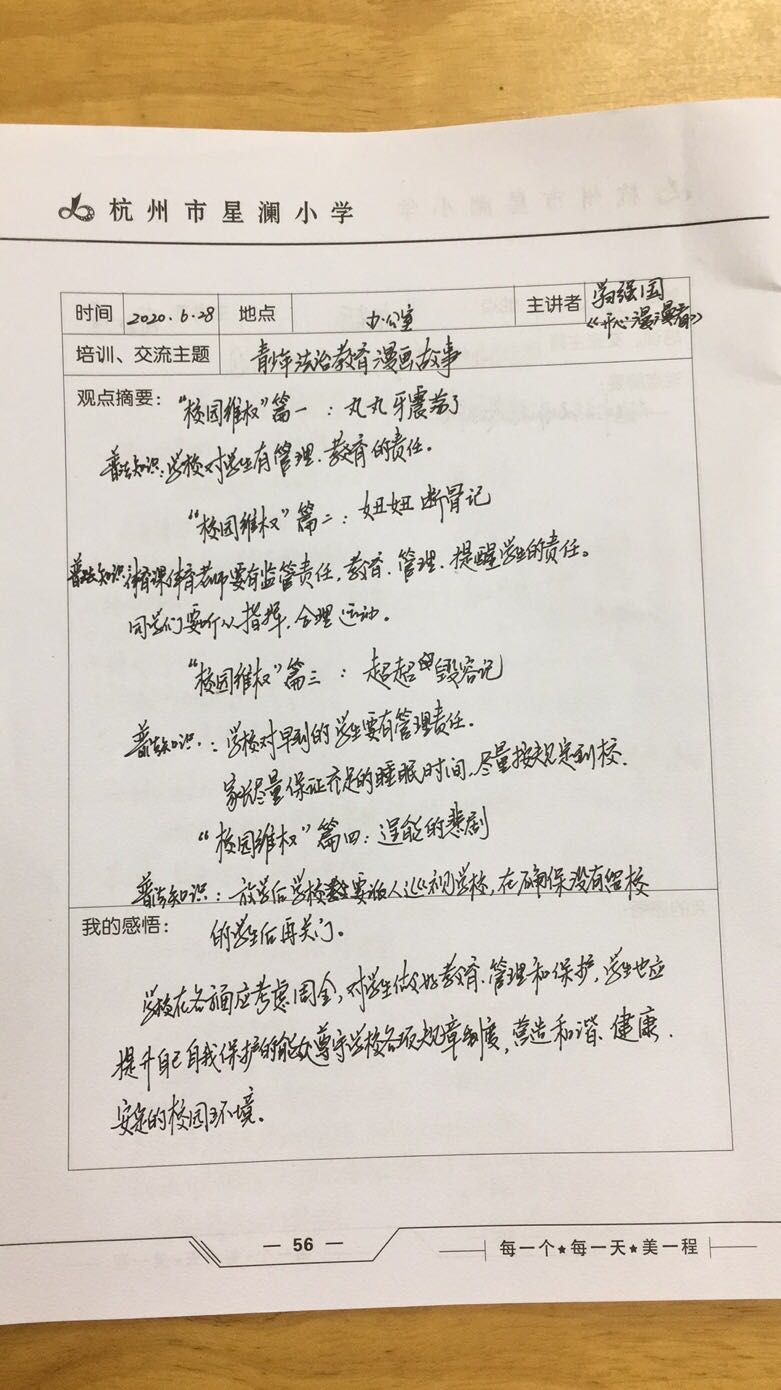 杭州市星澜小学
时间 2020.6.28 地点 办公室 主讲者 学习强国《开心漫漫看》
培训、交流主题 青少年法治教育漫画故事
观点摘要： "校园维权"篇一：丸丸牙震荡了
普法知识：学校对学生有管理、教育的责任。
"校园维权"篇二：妞妞断骨记
普法知识：体育课体育老师要有监管责任，教育、管理、提醒学生的责任。
同学们要听从指挥，合理运动。
"校园维权"篇三：超超毁容记
普法知识：学校对早到的学生要有管理责任。
家长尽量保证充足的睡眠时间，尽量按规定到校。
"校园维权"篇四：逞能的悲剧
普法知识：放学后学校要派人巡视学校，在确保没有留校
我的感悟： 的学生后再关门。
学校在各方面应考虑周全，对学生做好教育、管理和保护，学生也应
提升自己自我保护的能力，遵守学校各项规章制度，营造和谐、健康、
安定的校园环境。
56
每一个★每一天★美一程